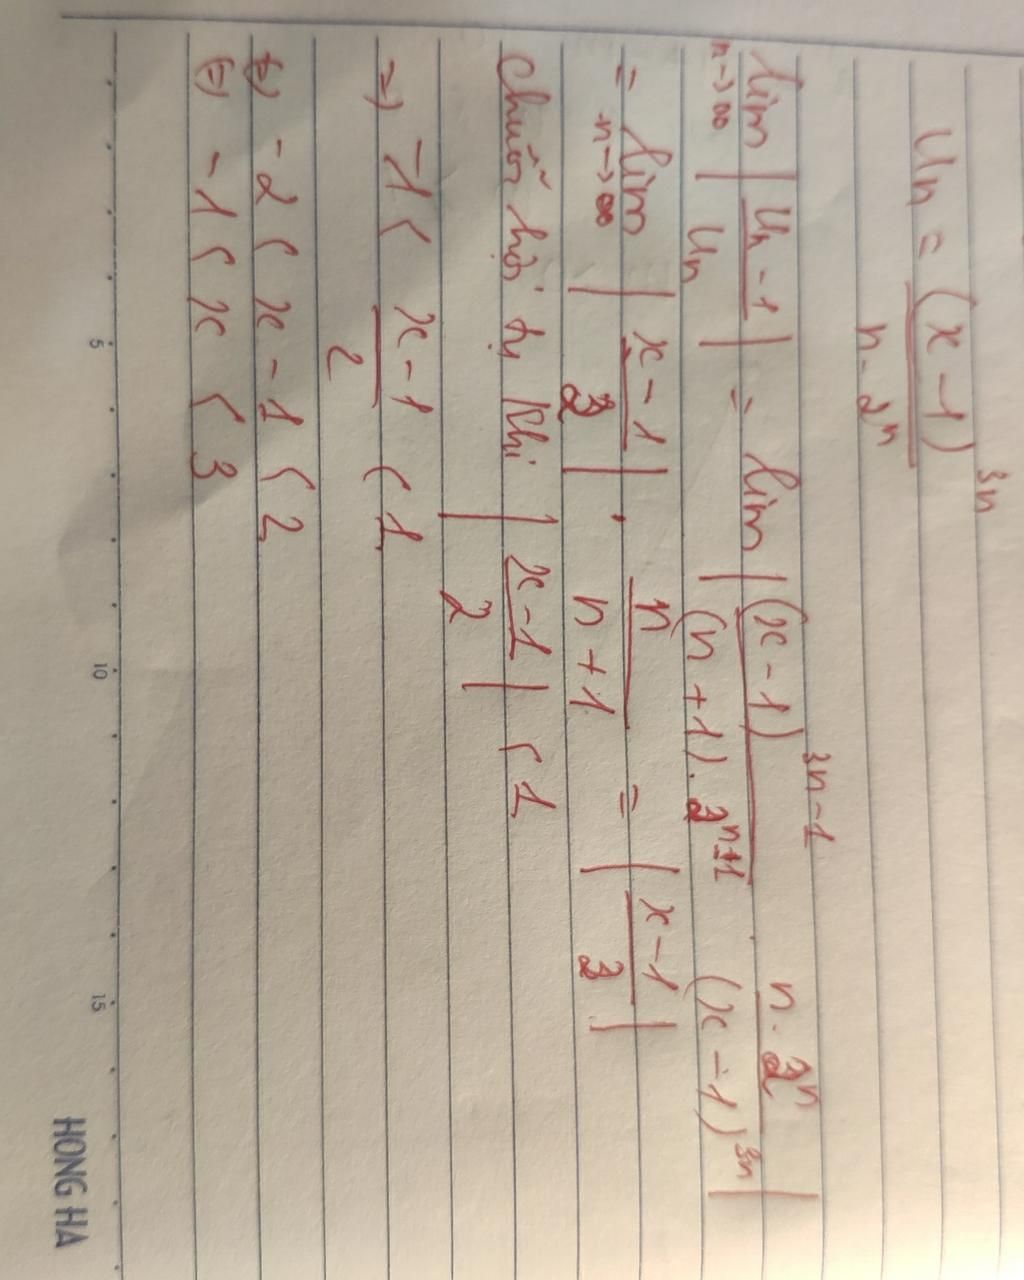 Un = (x - 1)^3n / n . 2^n
lim n→∞ | Un - 1 / Un | = lim | (x - 1)^3n-1 / (n + 1) . 2^n+1 . n . 2^n / (x - 1)^3n |
= lim n→∞ | x - 1 / 2 | . n / n + 1 = | x - 1 / 2 |
Chuỗi hội tụ khi | x - 1 / 2 | < 1
⇒ -1 < x - 1 / 2 < 1
⇔ -2 < x - 1 < 2
⇔ -1 < x < 3
5 10 15
HONG HA